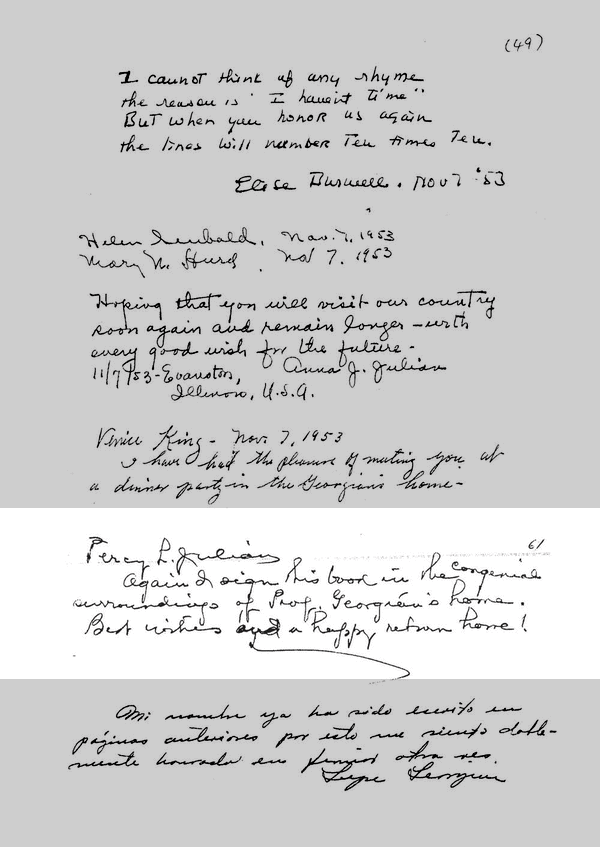 (49)
I cannot think of any rhyme
the reason is "I haven't time"
But when you honor us again
the lines will number Ten times Ten.
Elise Burwell. Nov 7 '53
Helen, Nov. 7, 1953
Mary N. Hurd. Nov 7. 1953
Hoping that you will visit our country
soon again and remain longer - with
every good wish for the future -
11/7/53 - Evanston, Anna J. Julian
Illinois, U.S.A.
Venice King - Nov. 7, 1953
I have had the pleasure of meeting you at
a dinner party in the Georgian's home -
61
Percy L. Julian
Again I sign this book in the congenial
surroundings of Prof. Georgián's home.
Best wishes and a happy return home!
Mi nombre ya ha sido escrito en
páginas anteriores por esto me siento doble-
mente honrada en firmar otra ves.
Lupe Georgian